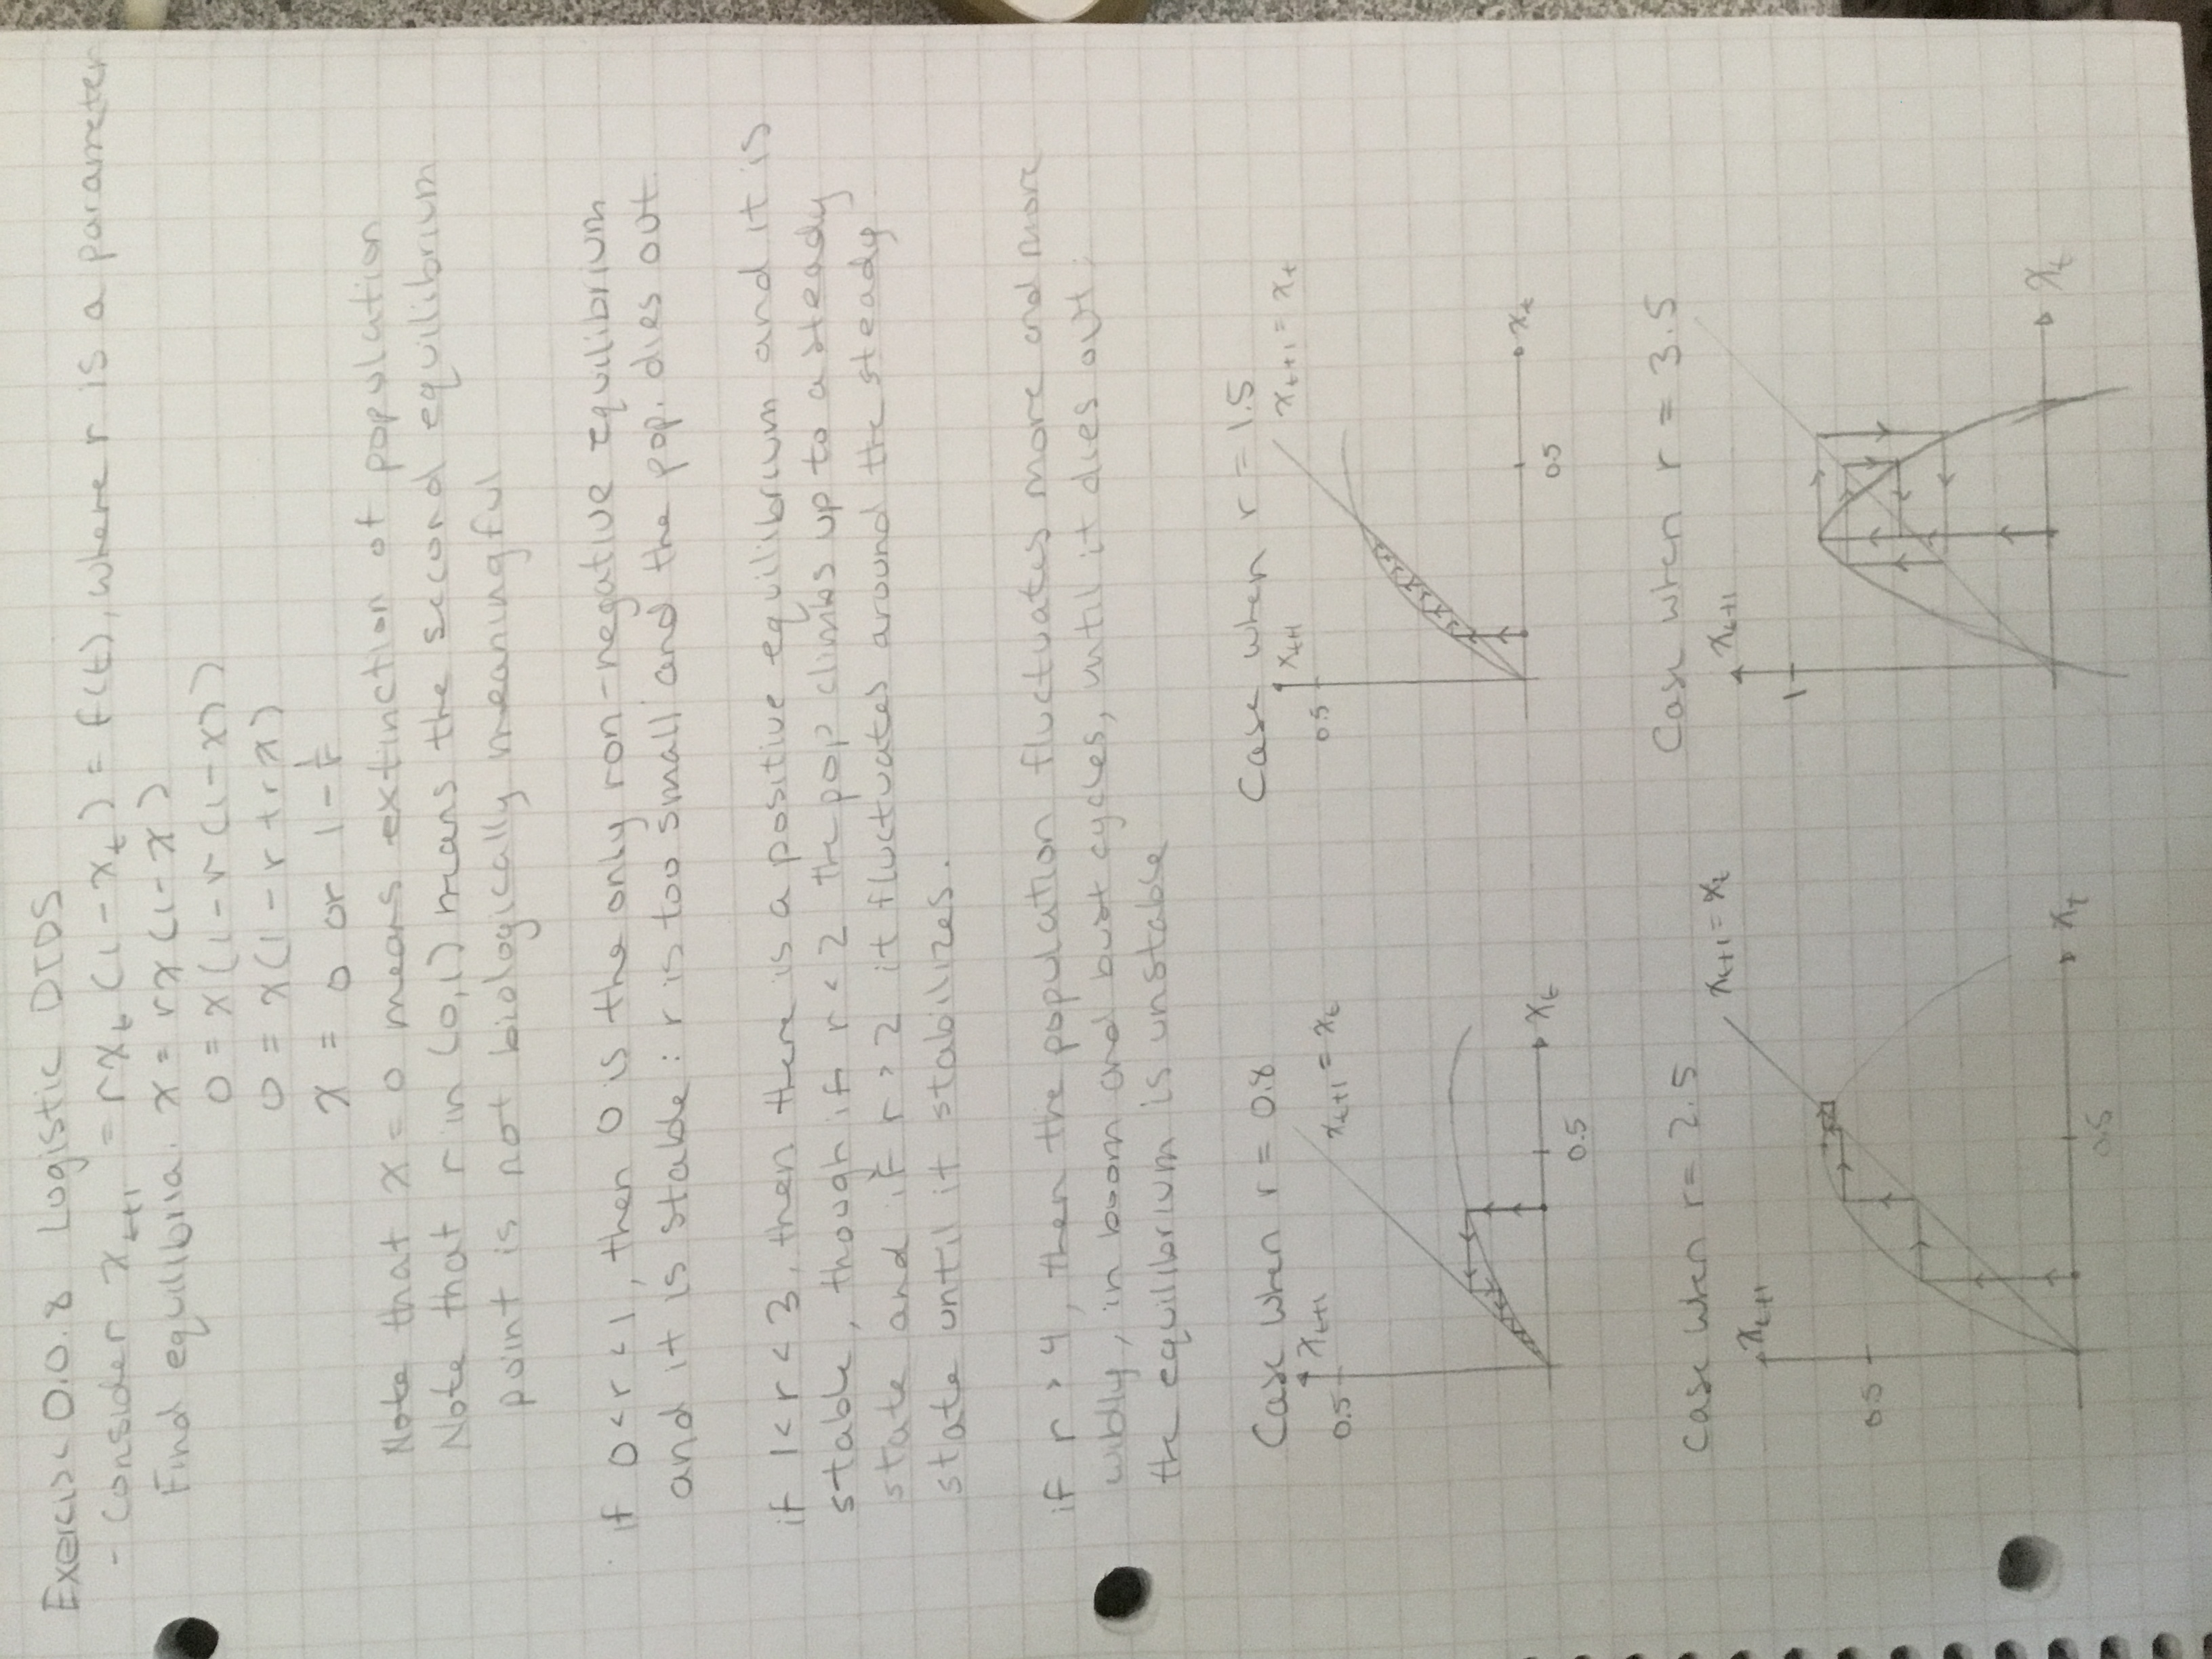 Exercise 0.0.8 Logistic DTDS
- Consider x_{t+1} = r x_t (1 - x_t) = f(t), where r is a parameter
Find equilibria: x = rx(1-x)
0 = x(1-r(1-x))
0 = x(1-r+rx)
x = 0 or 1-1/r
Note that x=0 means extinction of population
Note that r in (0,1) means the second equilibrium
point is not biologically meaningful
if 0<r<1, then 0 is the only non-negative equilibrium
and it is stable: r is too small and the pop. dies out.
if 1<r<3, then there is a positive equilibrium and it is
stable, though if r<2 the pop climbs up to a steady
state and if r>2 it fluctuates around the steady
state until it stabilizes.
if r>4, then the population fluctuates more and more
wildly, in boom and bust cycles, until it dies out;
the equilibrium is unstable
Case when r = 0.8
x_{t+1}
0.5
x_{t+1} = x_t
0.5
x_t
Case when r = 1.5
x_{t+1}
0.5
x_{t+1} = x_t
0.5
x_t
Case when r = 2.5
x_{t+1}
0.5
x_{t+1} = x_t
0.5
x_t
Case when r = 3.5
x_{t+1}
1
x_t